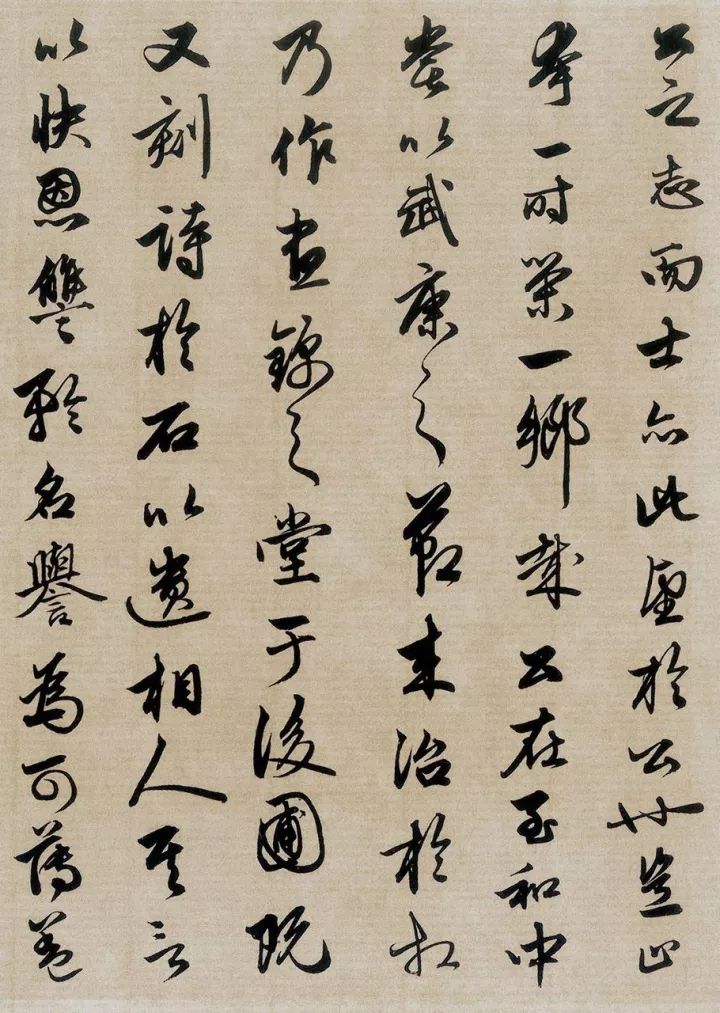 公之志而士亦此望於公也豈止
夸一时榮一鄉哉公在至和中
嘗以武康之節来治於相
乃作晝錦之堂于後圃既
又刻詩於石以遺相人其言
以快恩讐矜名譽為可薄蓋